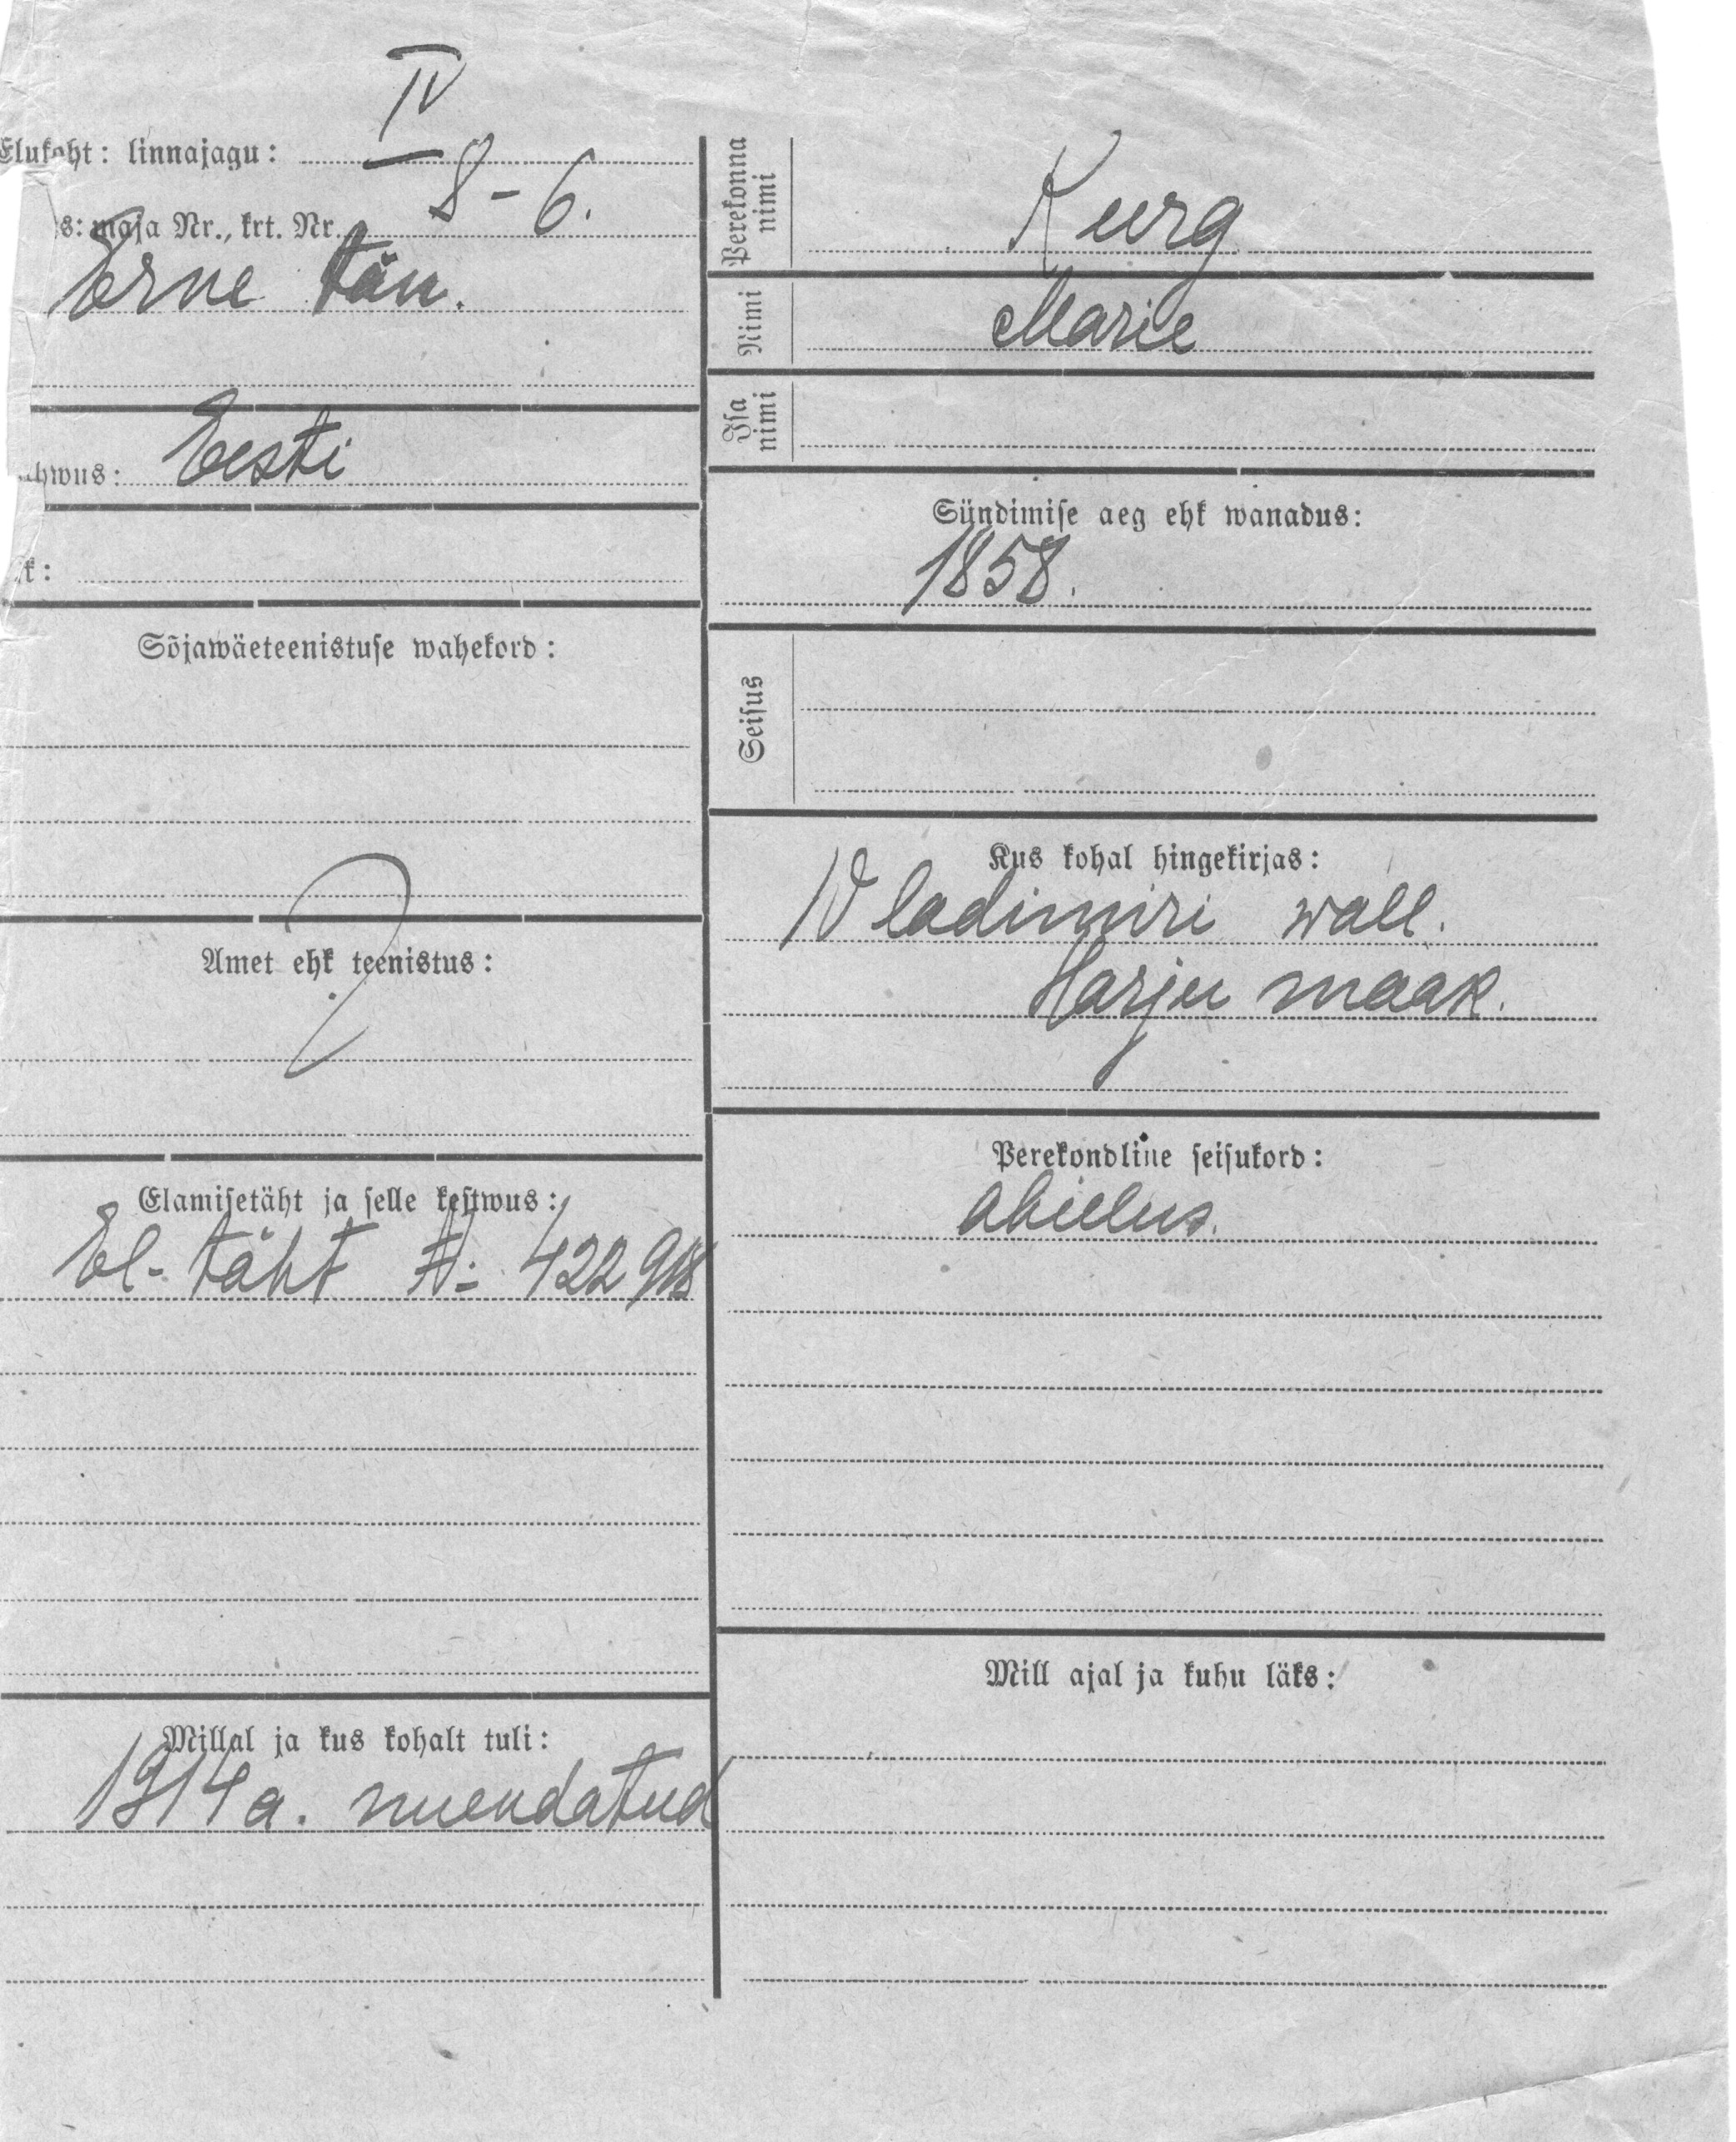 IV
Elukoht: linnajagu:
8-6.
s: maja Nr., krt. Nr.
Erne tän.
ahwus: Eesti
k:
Sõjawäeteenistuse wahekord:
Amet ehk teenistus:
Elamisetäht ja selle kestwus:
El-täht №: 422918
Millal ja kus kohalt tuli:
1914 a. muendatud
Perekonna nimi
Kurg
Nimi
Marie
Isa nimi
Sündimise aeg ehk wanadus:
1858.
Seisus
Kus kohal hingekirjas:
Wladimiri wall.
Harju maak.
Perekondline seisukord:
abielus.
Mill ajal ja kuhu läks: